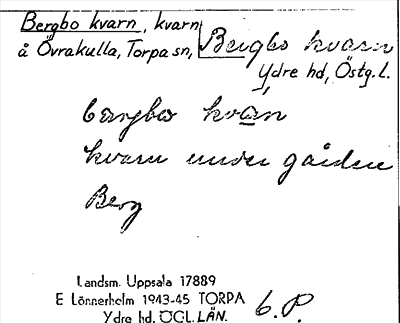 Bergbo kvarn, kvarn
å Övrakulla, Torpa sn,
Bergbo kvarn
Ydre hd, Östg. l.
bärgbo kvan
kvarn under gården
Berg
Landsm. Uppsala 17889
E Lönnerholm 1943-45 TORPA
Ydre hd. ÖGL. LÄN.
6. P.